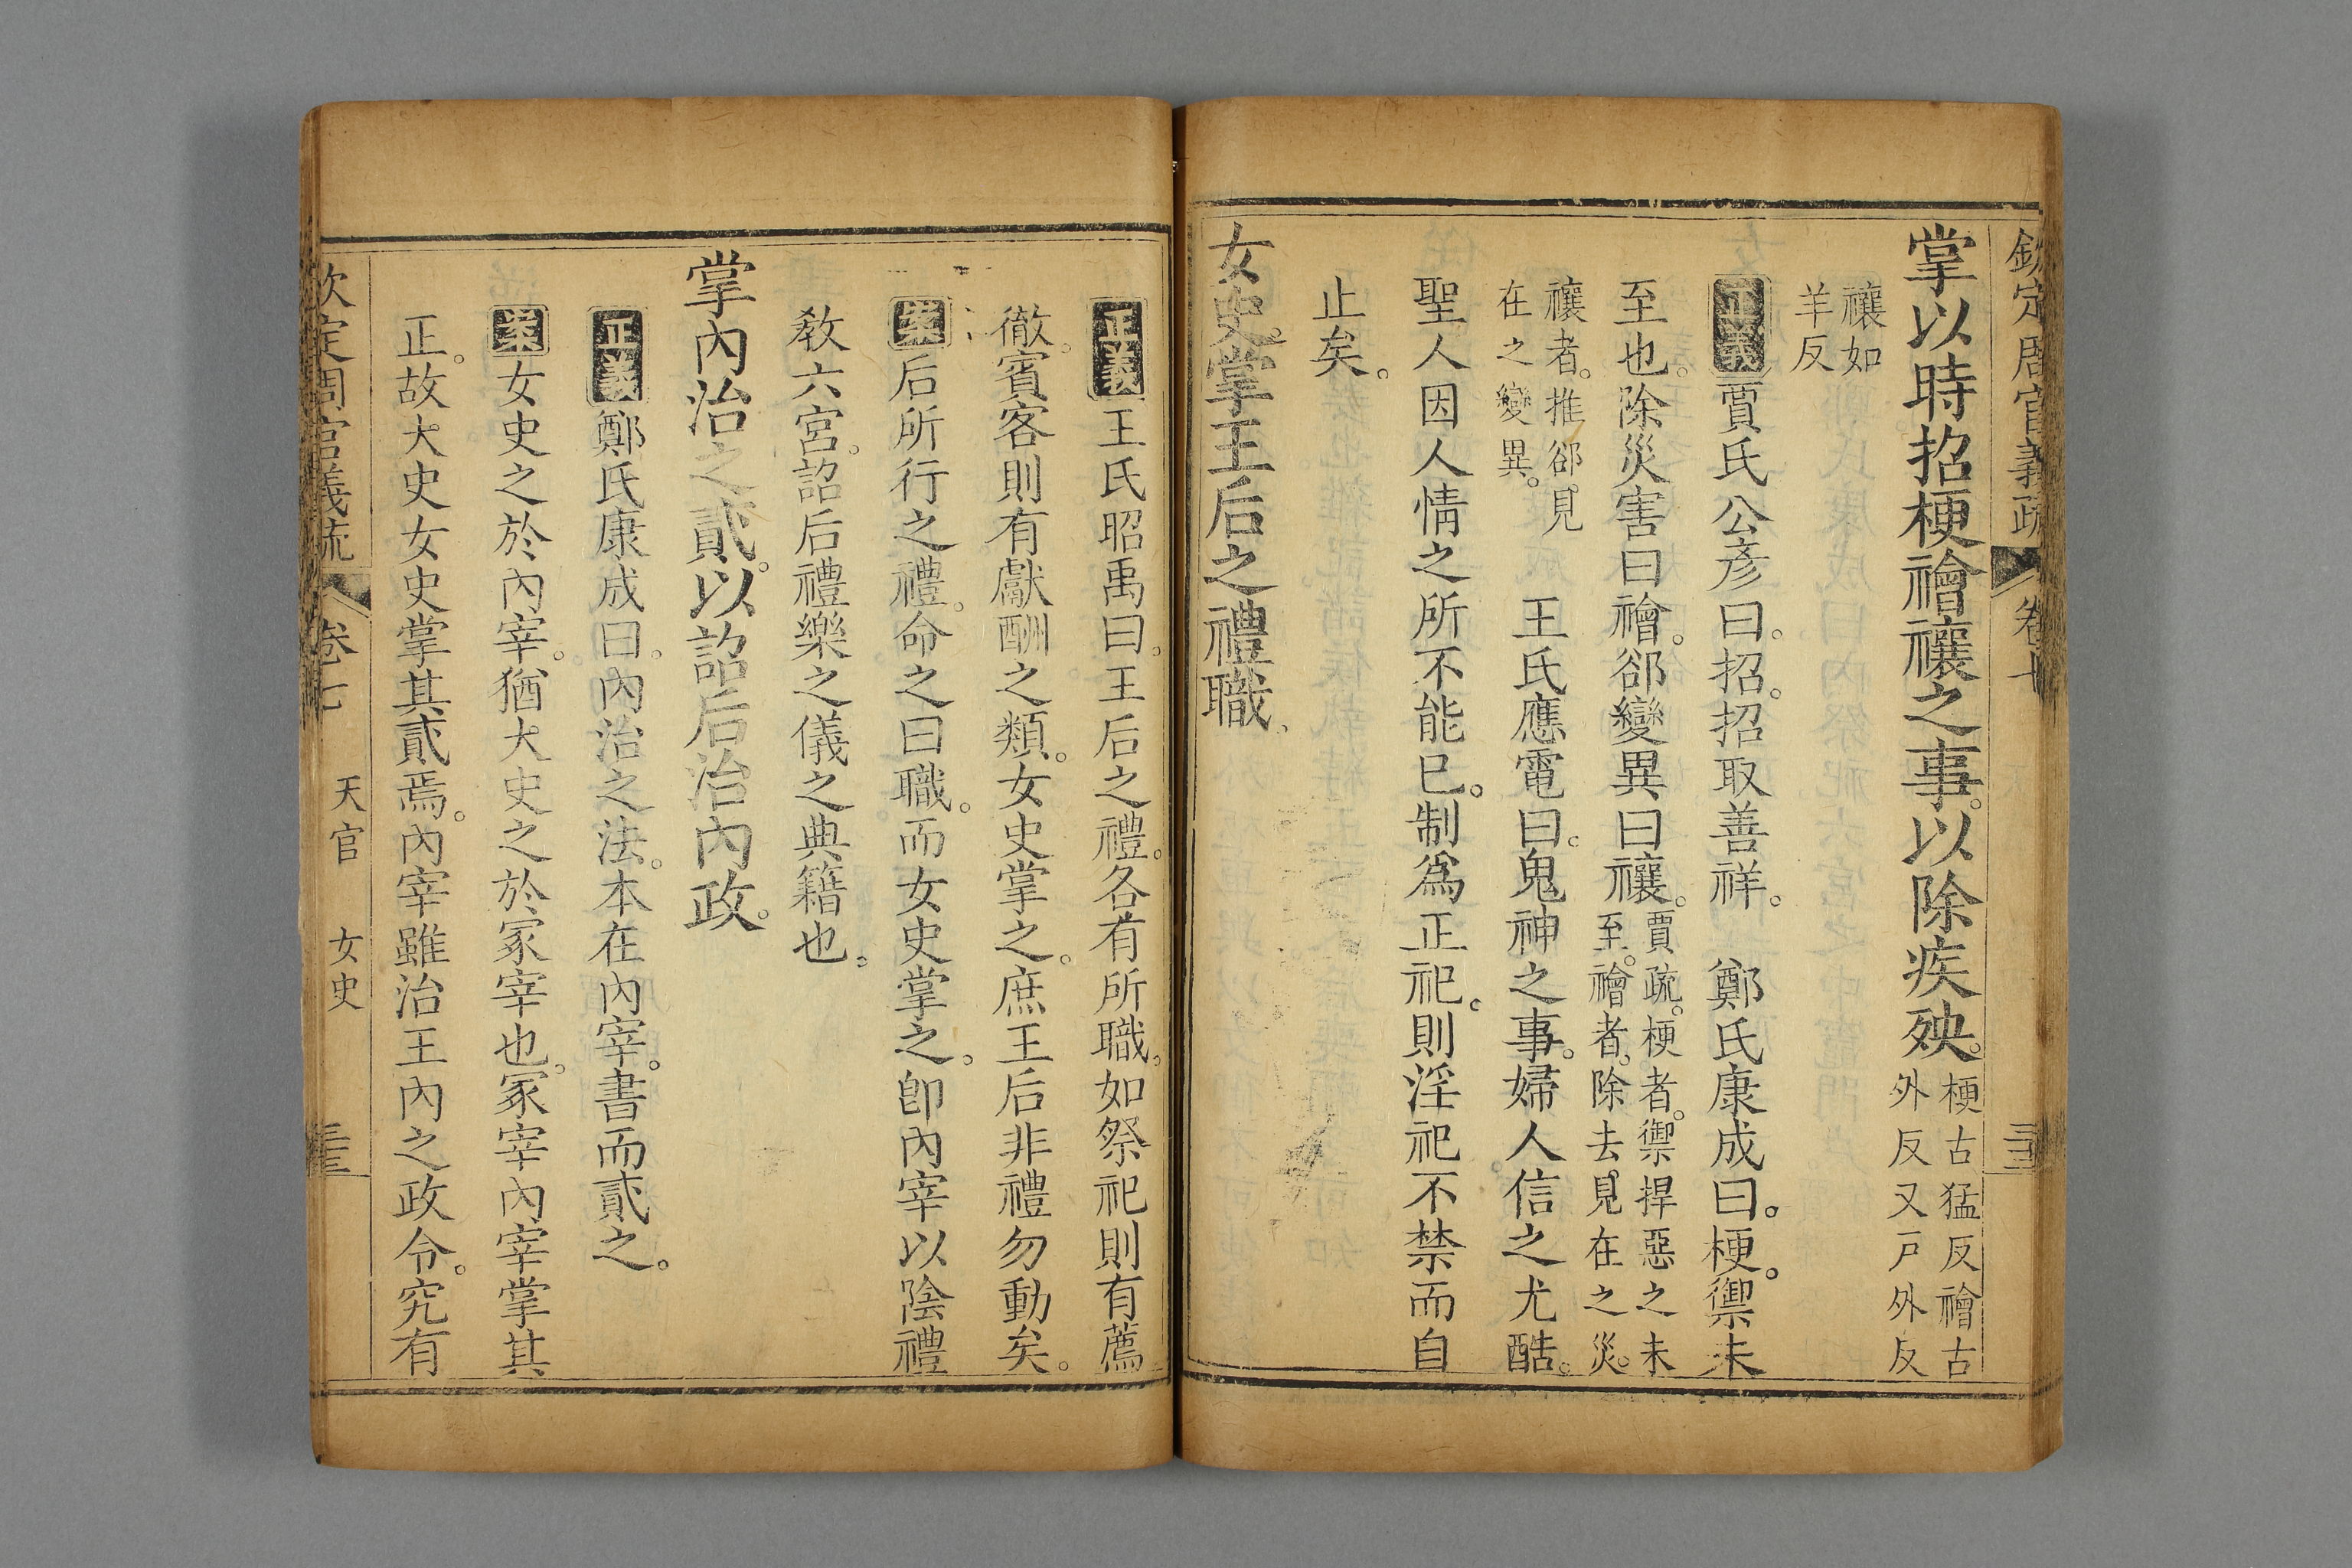 欽定周官義疏 卷七
掌以時招梗禬禳之事。以除疾殃。梗古猛反禬古外反又戶外反
禳如羊反
正義賈氏公彥曰。招。招取善祥。 鄭氏康成曰。梗。禦未
至也。除災害曰禬。郤變異曰禳。賈疏。梗者。禦捍惡之未至。禬者。除去見在之災。
禳者。推郤見在之變異。 王氏應電曰。鬼神之事。婦人信之尤酷。
聖人因人情之所不能已。制爲正祀。則淫祀不禁而自
止矣。
女史。掌王后之禮職。
正義王氏昭禹曰。王后之禮。各有所職。如祭祀則有薦
徹。賓客則有獻酬之類。女史掌之。庶王后非禮勿動矣。
案后所行之禮。命之曰職。而女史掌之。卽內宰以陰禮
敎六宮。詔后禮樂之儀之典籍也。
掌內治之貳。以詔后治內政。
正義鄭氏康成曰。內治之法。本在內宰。書而貳之。
案女史之於內宰。猶大史之於冢宰也。冢宰內宰掌其
正。故大史女史掌其貳焉。內宰雖治王內之政令。究有
欽定周官義疏 卷七 天官 女史